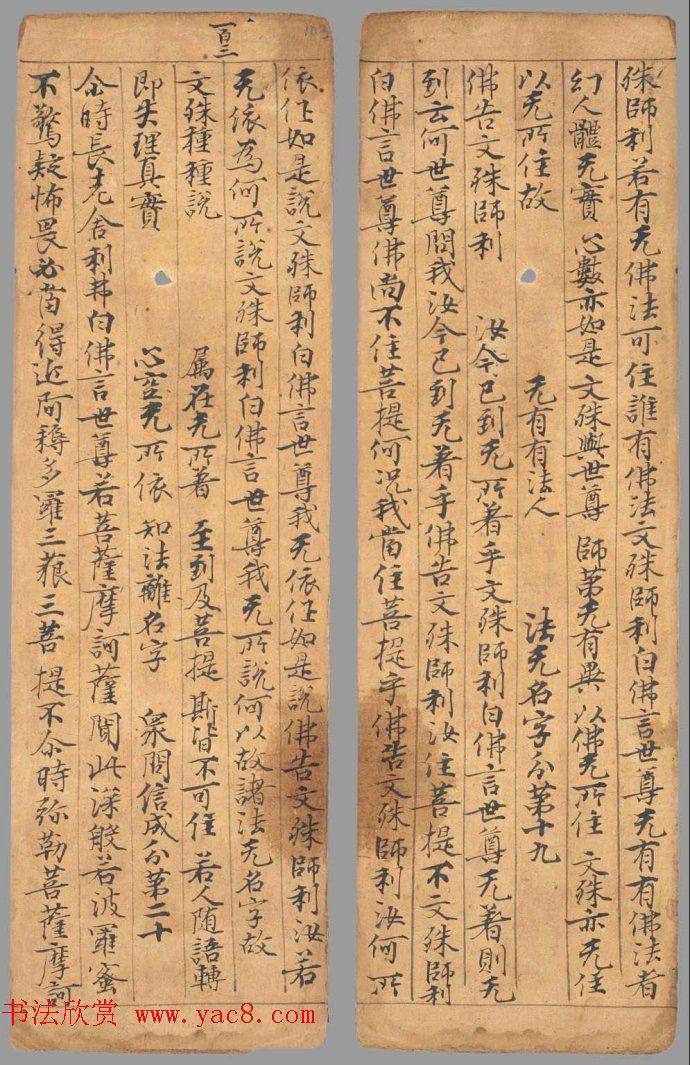 殊師利若有无佛法可住誰有佛法文殊師利白佛言世尊无有有佛法者
幻人體无實 心數亦如是 文殊與世尊 師苐无有異 以佛无所住 文殊亦无住
以无所住故 无有有法人 法无名字分苐十九
佛告文殊師利 汝今已到无所著乎文殊師利白佛言世尊无著則无
到云何世尊問我汝今已到无著乎佛告文殊師利汝住菩提不文殊師利
白佛言世尊佛尚不住菩提何況我當住菩提乎佛告文殊師利汝何所
103
百三
依住如是說文殊師利白佛言世尊我无依住如是說佛告文殊師利汝若
无依為何所說文殊師利白佛言世尊我无所說何以故諸法无名字故
文殊種種說 属在无所著 至到及菩提 斯皆不可住 若人随語轉
即失理真實 心空无所依 知法離名字 衆問信成分苐二十
尒時長老舍利弗白佛言世尊若菩薩摩訶薩聞此深般若波羅蜜
不驚疑怖畏必當得近阿耨多羅三藐三菩提不尒時弥勒菩薩摩訶
书法欣赏 www.yac8.com